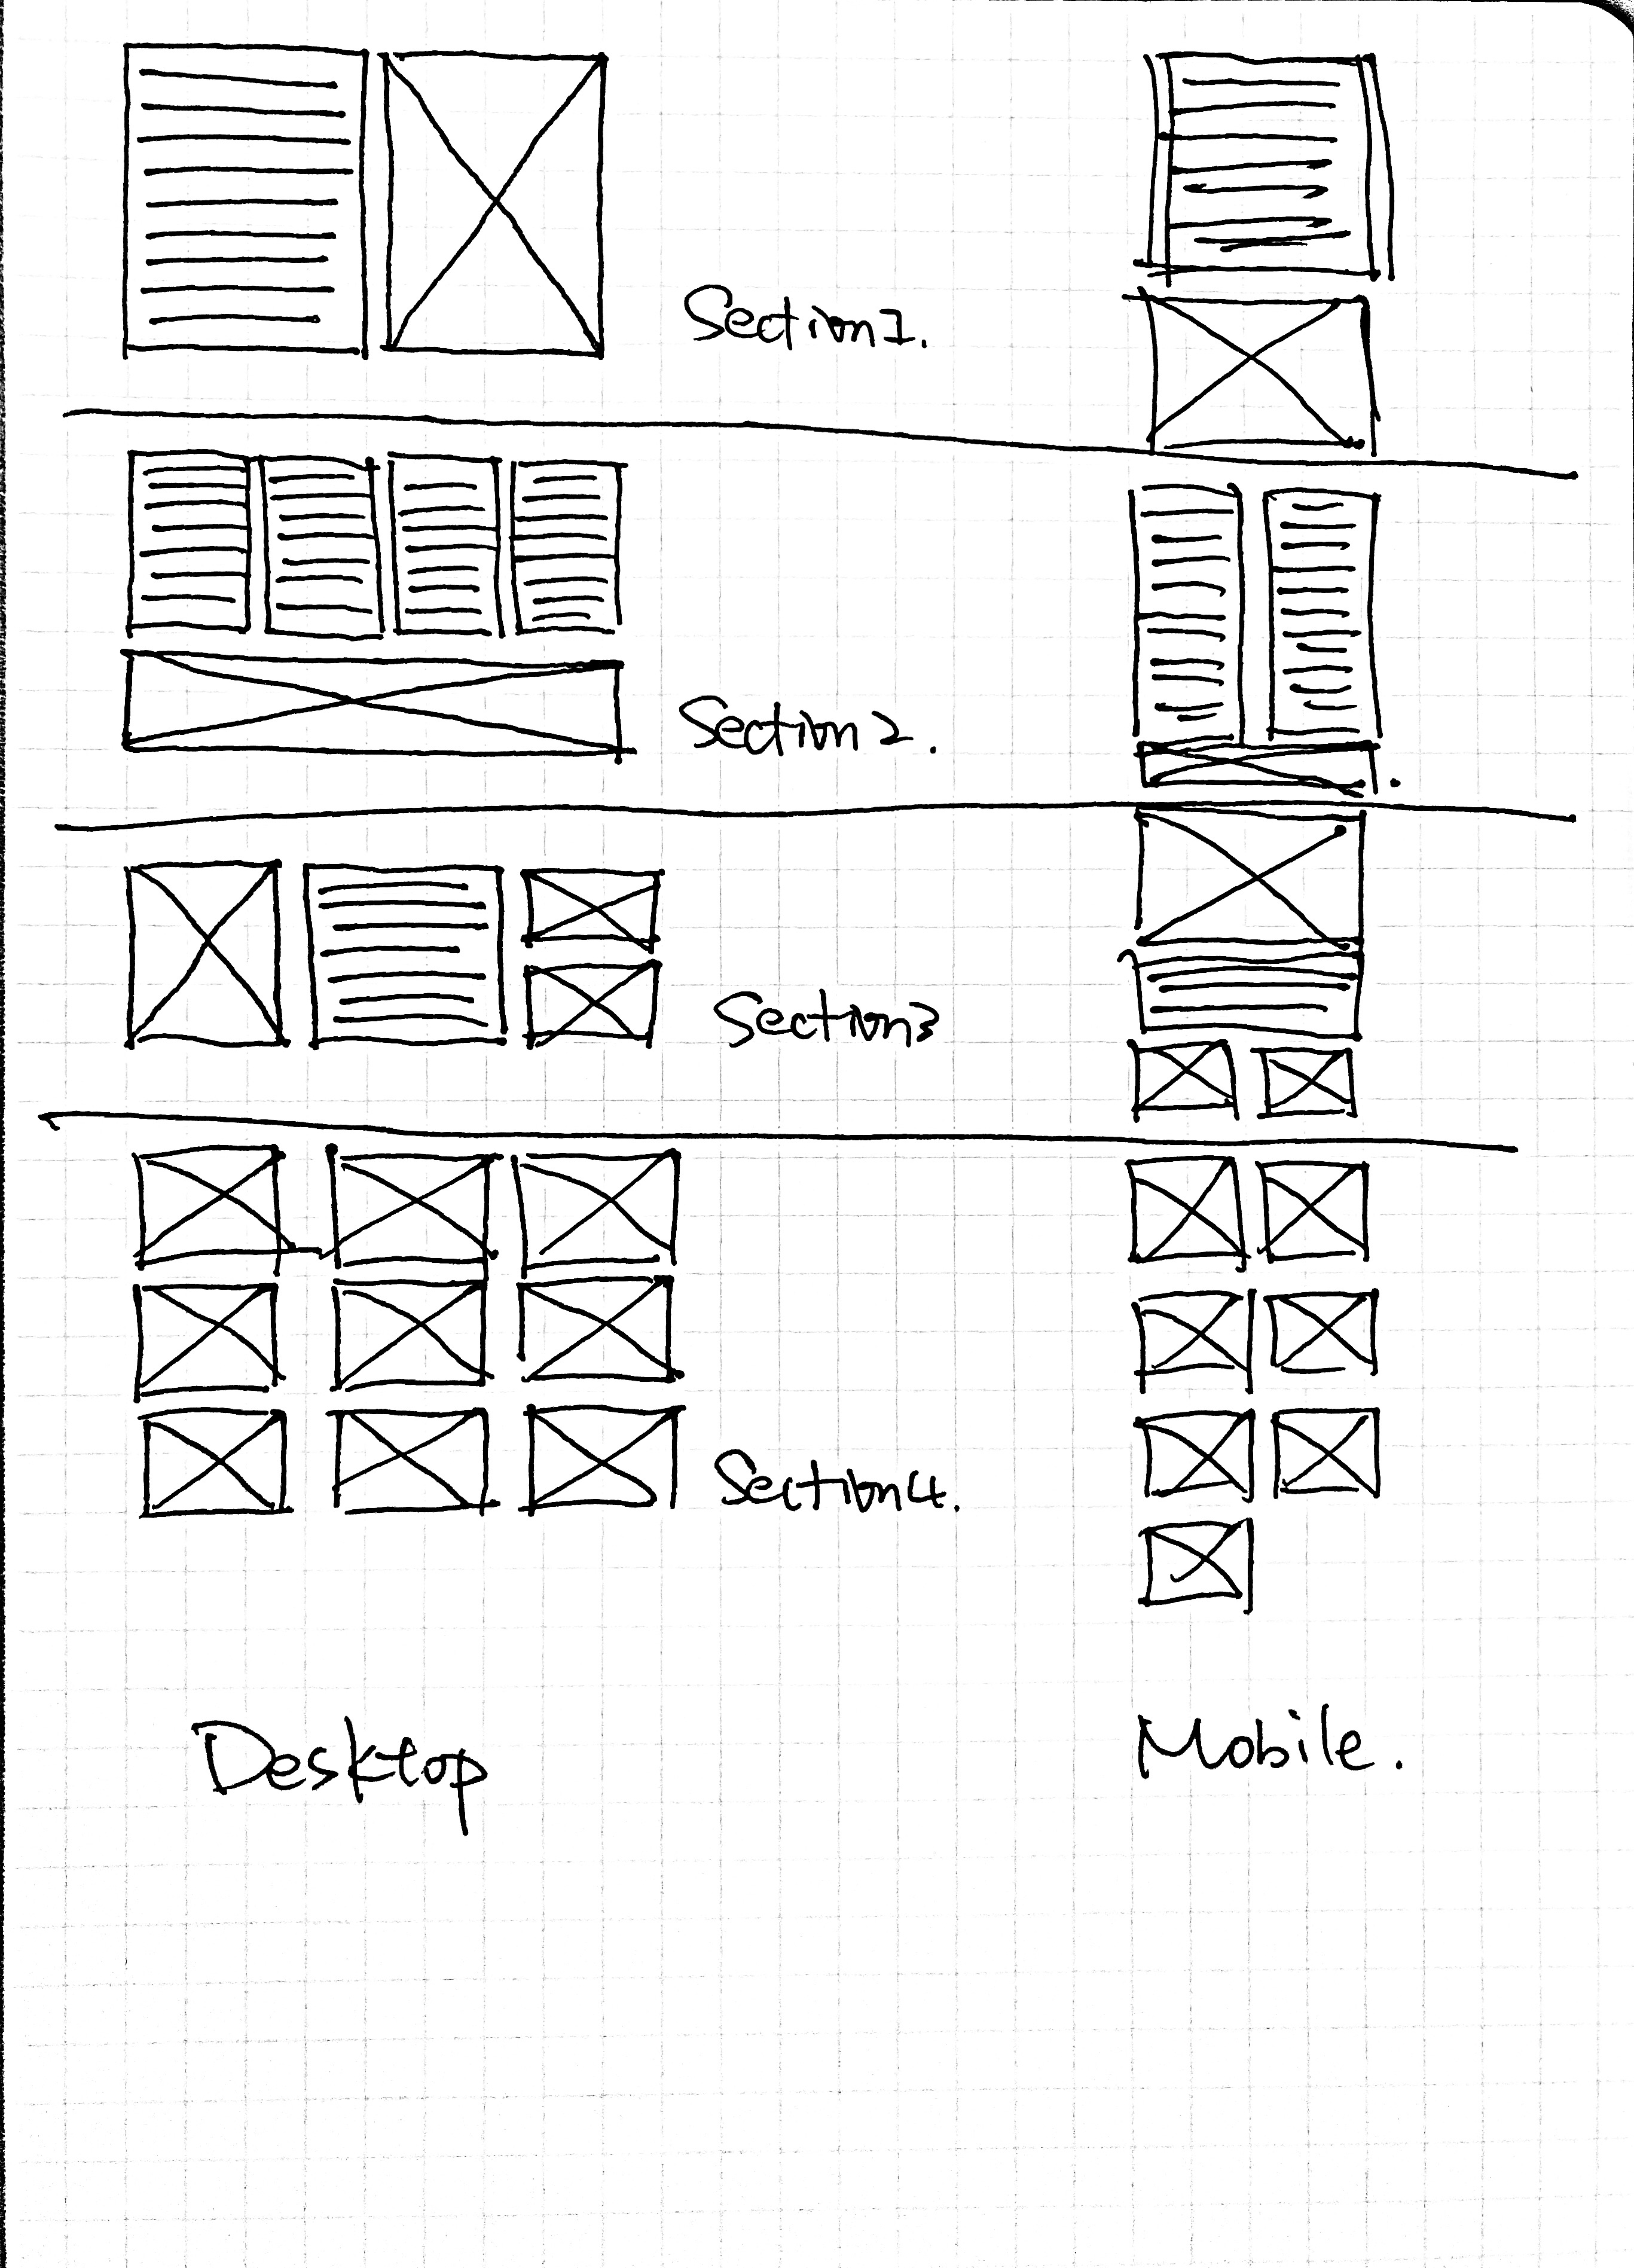 Section1.
Section2.
Section3
Section4.
Desktop
Mobile.